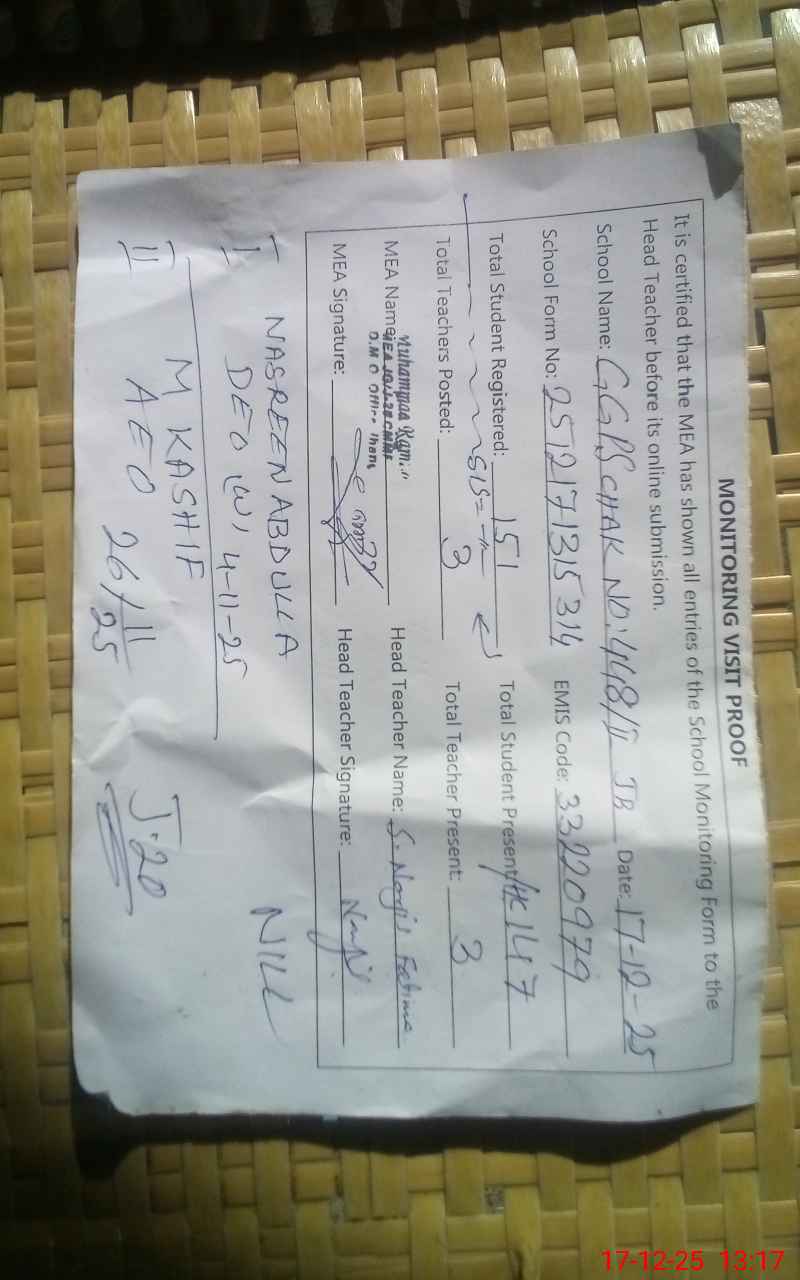 MONITORING VISIT PROOF
It is certified that the MEA has shown all entries of the School Monitoring Form to the
Head Teacher before its online submission.
School Name: GGPS CHAK NO: 448/II JB Date: 17-12-25
School Form No: 2512171315314 EMIS Code: 33220979
Total Student Registered: 151 Total Student Present: 147
SIS=
Total Teachers Posted: 3 Total Teacher Present: 3
MEA Name: Head Teacher Name: S. Nargis Fatima
MEA Signature: Head Teacher Signature:
I NASREEN ABDULLA NILL
DEO (W) 4-11-25
II M KASHIF
AEO 26/11/25 J.20
17-12-25 13:17